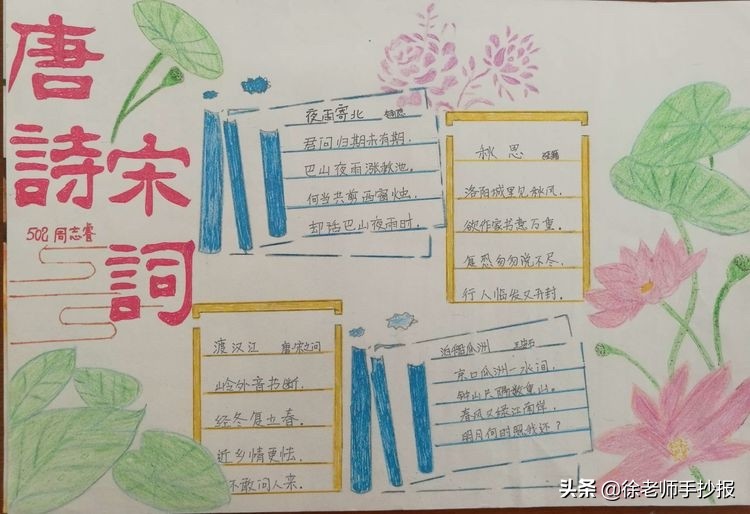 唐
詩 宋
詞
502 周志睿
夜雨寄北
君问归期未有期.
巴山夜雨涨秋池.
何当共剪西窗烛.
却话巴山夜雨时.
秋思 张籍
洛阳城里见秋风.
欲作家书意万重.
复恐匆匆说不尽.
行人临发又开封.
渡汉江 唐·宋之问
岭外音书断.
经冬复立春.
近乡情更怯.
不敢问人来.
泊船瓜洲 王安石
京口瓜洲一水间,
钟山只隔数重山。
春风又绿江南岸,
明月何时照我还?
头条 @徐老师手抄报